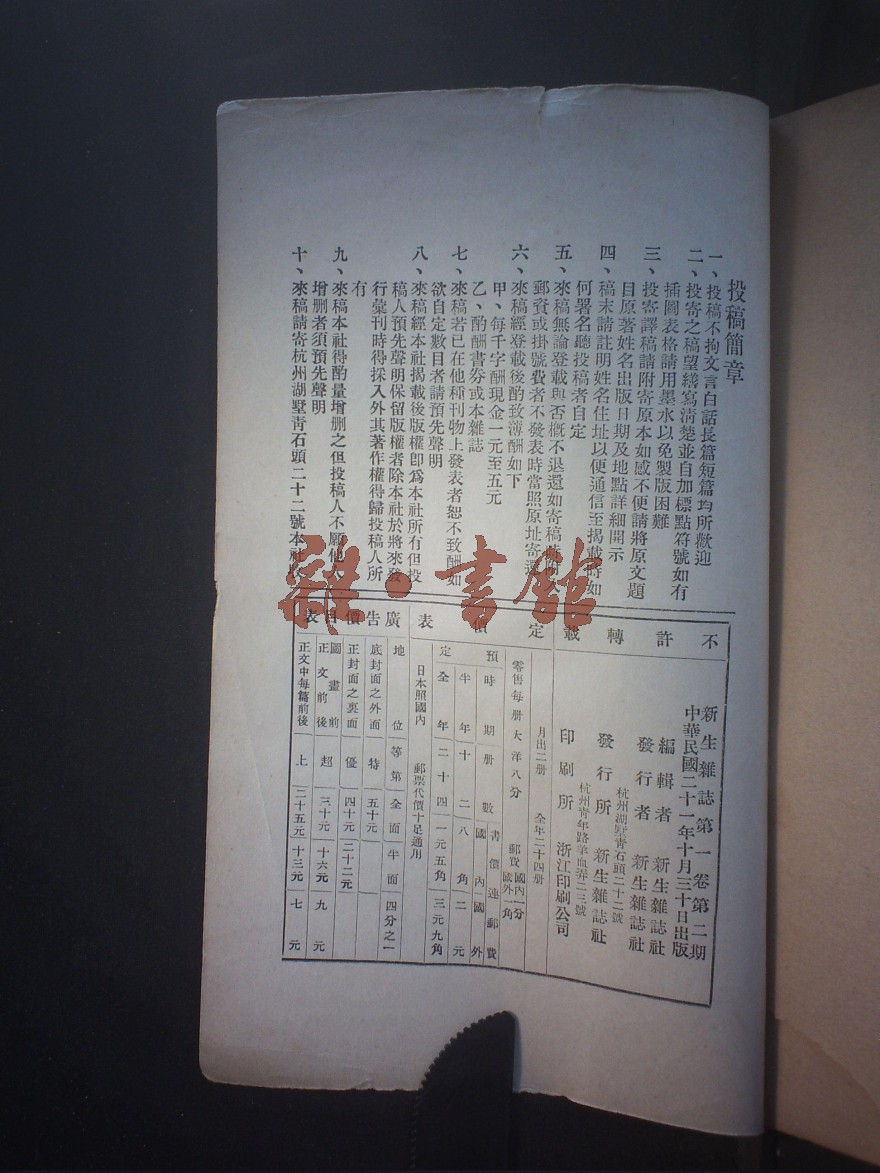 投稿簡章
一、投稿不拘文言白話長篇短篇均所歡迎
二、投寄之稿望繕寫清楚並自加標點符號如有
插圖表格請用墨水以免製版困難
三、投寄譯稿請附寄原本如感不便請將原文題
目原著姓名出版日期及地點詳細開示
四、稿末請註明姓名住址以便通信至揭載時如
何署名聽投稿者自定
五、來稿無論登載與否概不退還如寄稿時附
郵資或掛號費者不發表時當照原址寄還
六、來稿經登載後酌致薄酬如下
甲、每千字酬現金一元至五元
乙、酌酬書券或本雜誌
七、來稿若已在他種刊物上發表者恕不致酬如
欲自定數目者請預先聲明
八、來稿經本社揭載後版權卽爲本社所有但投
稿人預先聲明保留版權者除本社於將來發
行彙刊時得採入外其著作權得歸投稿人所
有
九、來稿本社得酌量增刪之但投稿人不願他人
增刪者須預先聲明
十、來稿請寄杭州湖墅青石頭二十二號本社
雜·書館
不許轉載
新生雜誌第一卷第二期
中華民國二十一年十月三十日出版
編輯者 新生雜誌社
發行者 新生雜誌社
杭州湖墅青石頭二十二號
發行所 新生雜誌社
杭州青年路羊血弄二三號
印刷所 浙江印刷公司
定價表
月出二册 全年二十四册
零售每册大洋八分 郵費國內一分國外一角
預定
時期 册數 書價連郵費 國內 國外
半年 十二 八角 二元
全年 二十四 一元五角 三元九角
日本照國內 郵票代價十足通用
廣告價目表
地位 等第 全面 半面 四分之一
底封面之外面 特 五十元
正封面之裏面 優 四十元 二十二元
圖畫前正文前後 超 三十元 十六元 九元
正文中每篇前後 上 二十五元 十三元 七元